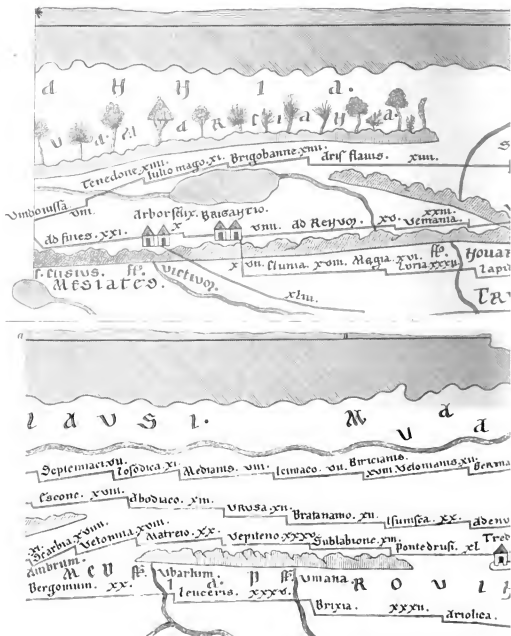 a H H I a.
V a. el a R C I a H a.
Tenedone. xiiii. Iulio mago. xi. Brigobanne. xiiii. aris flavis. xiiii.
Vindoniſſa viii. arbor felix. Brigantio.
ad fines. xxi. x viiii. ad Renum xv. vemania. xxiii.
x vii. Clunia. xviii. Magia. xvi. fl. Curia. xxxii.
r. Cusius. fl. Victium
Mesiates. xliii.
l a V S I. M a
V a
Septemiaci. vii. Losodica. xi. Medianis. viii. Iciniaco. vii. Biricianis. xviii. Vetonianis. xii. Germa
Escone. xviii. abodiaco. xiii. Vrusa. xii. Bratanamo. xii. Isunisca. xx. adenu
xi. Scarbia. xviiii. Vetonina. xviii. Matreio. xx. Vepiteno. xxxv. Sublabione. xiii. ponte drusi. xl Tred
Ambrum.
Mev fl. Vbartum. fl. Vmana. R O V I H
Bergomum. xx. Leuceris. xxxv. I a. p
Brixia xxxii. ariolica.